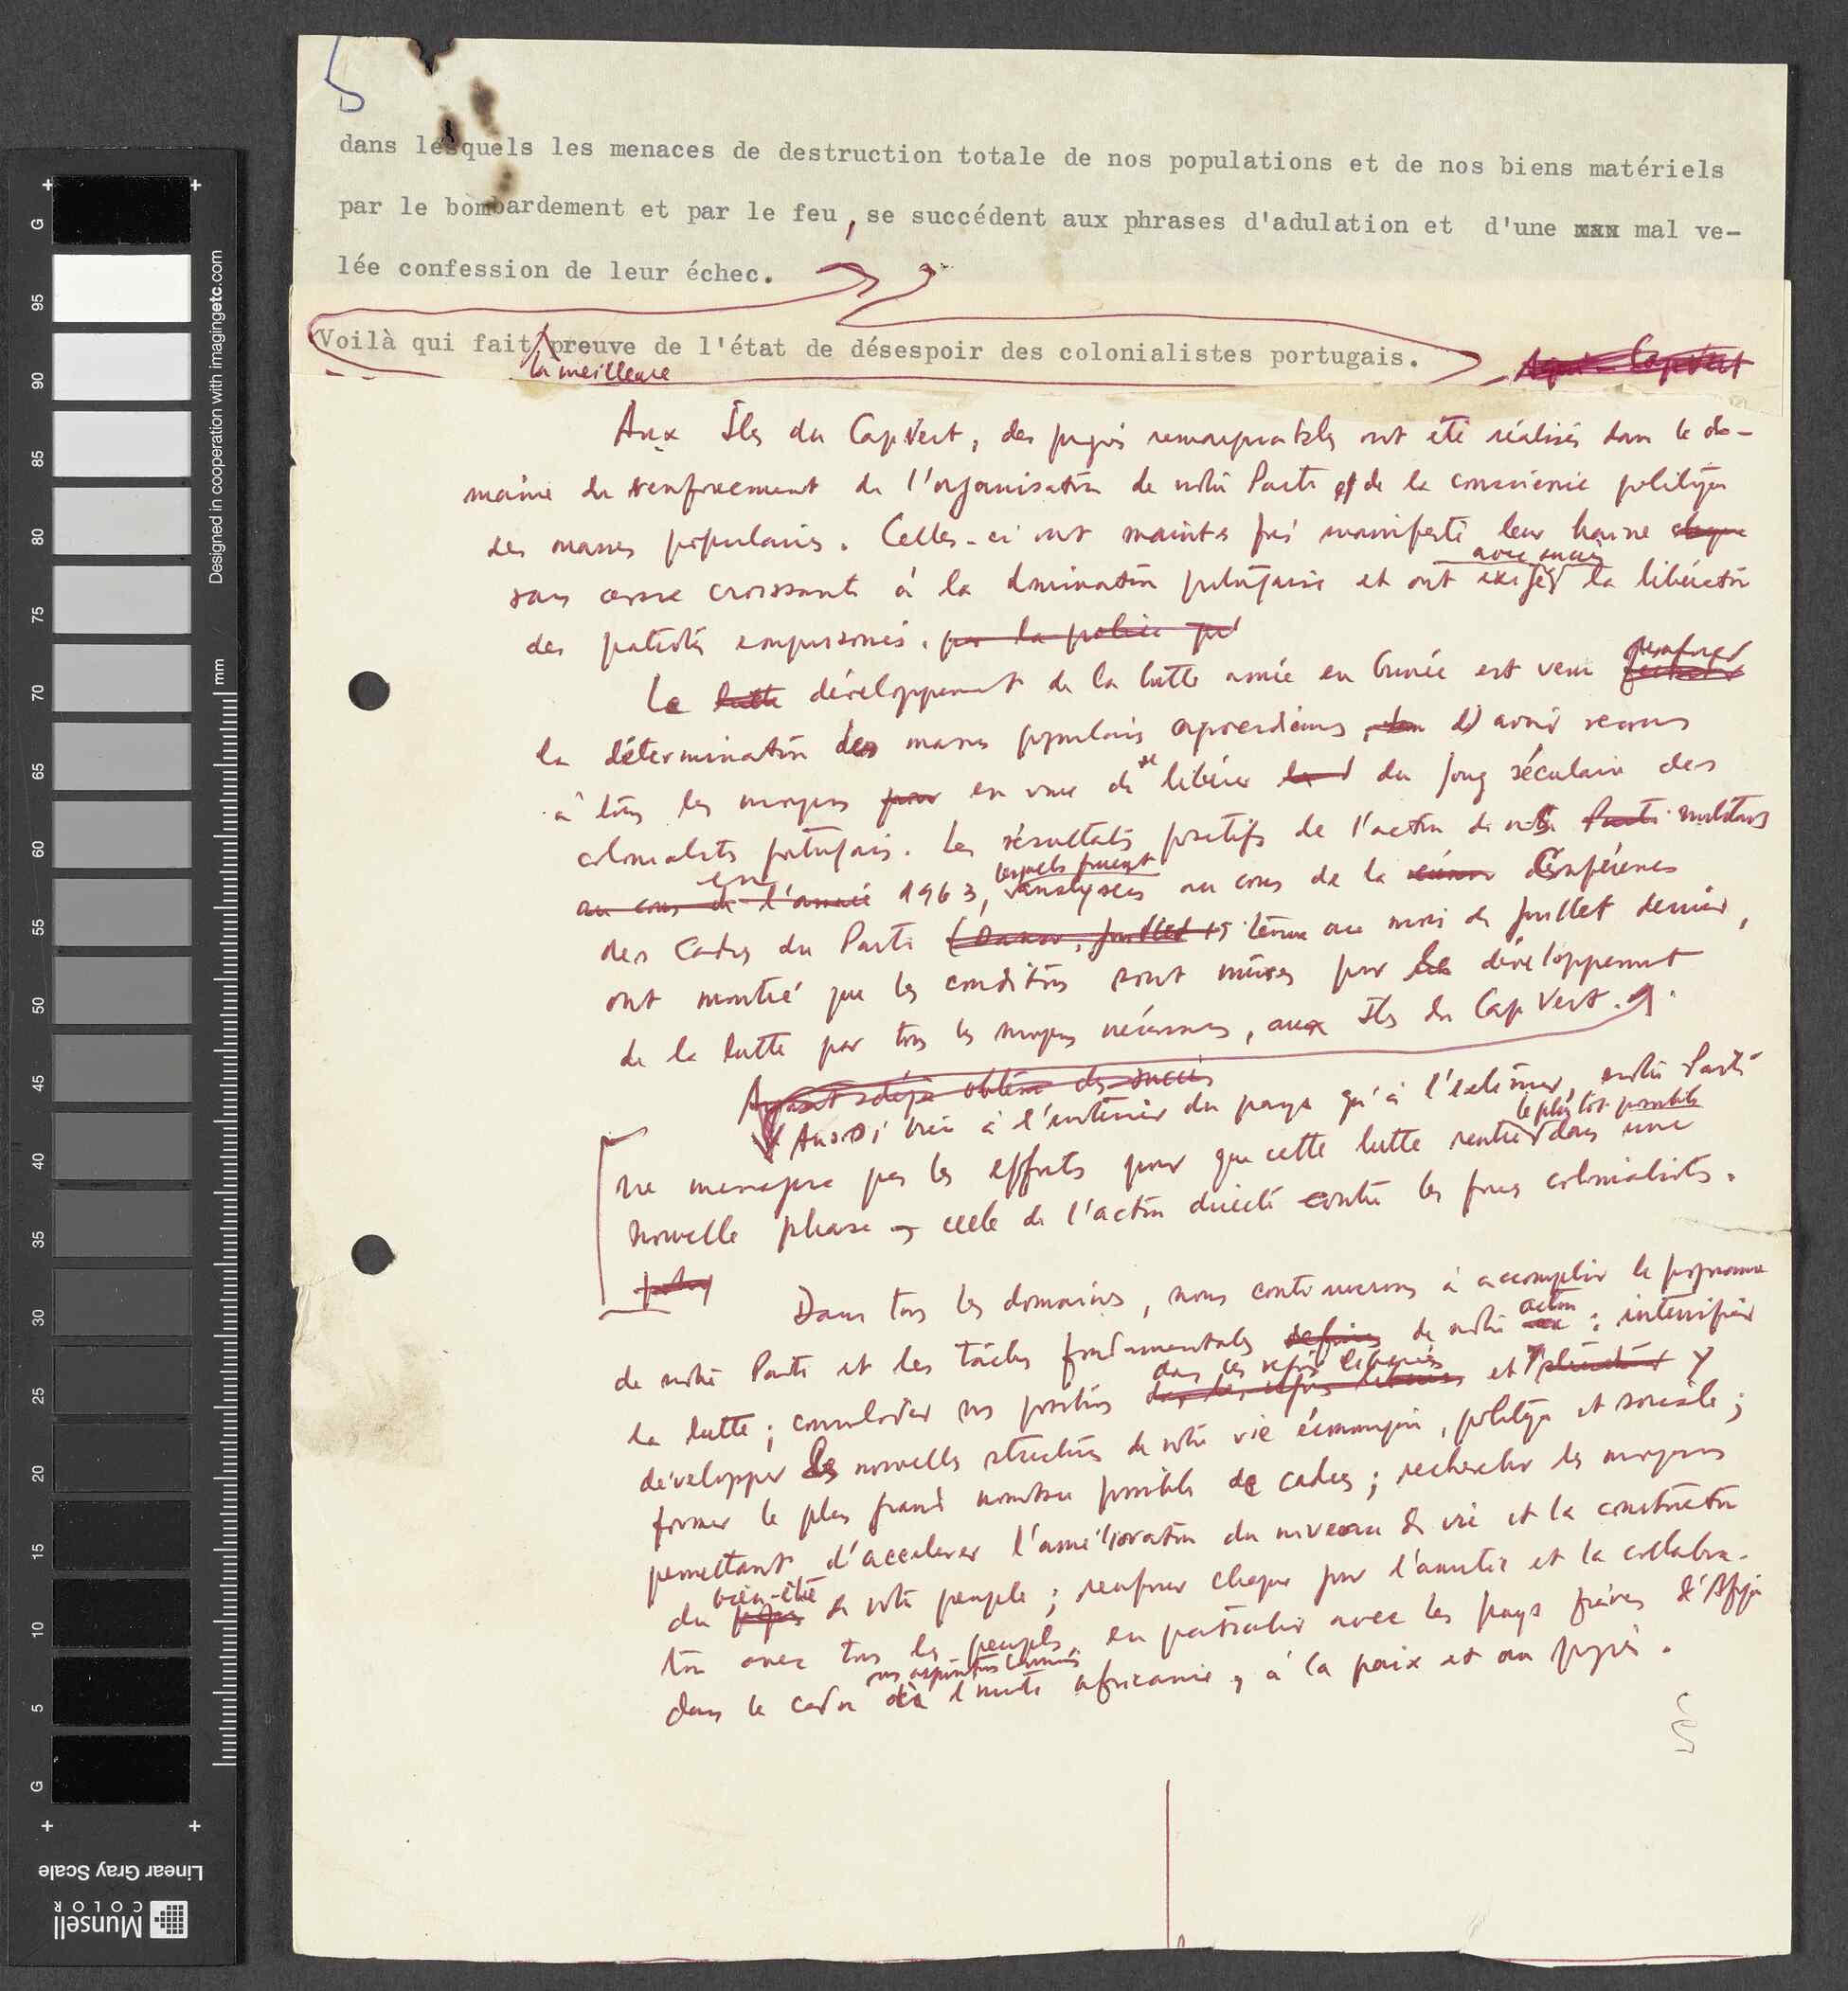 5
dans lesquels les menaces de destruction totale de nos populations et de nos biens matériels
par le bombardement et par le feu, se succédent aux phrases d'adulation et d'une xxx mal ve-
lée confession de leur échec.
Voilà qui fait la meilleure preuve de l'état de désespoir des colonialistes portugais.
Aux Îles du Cap Vert, des progrès remarquables ont été réalisés dans le do-
maine du renforcement de l'organisation de notre Parti et de la conscience politique
des masses populaires. Celles-ci ont maintes fois manifesté leur haine
sans cesse croissante à la domination portugaise et ont exigé avec succès la libération
des patriotes emprisonnés. par la police
Le lutte développement de la lutte armée en Guinée est venu renforcer
la détermination des masses populaires capverdiennes, d'avoir recours
à tous les moyens pour en vue de se libérer du joug séculaire des
colonialistes portugais. Les résultats positifs de l'action de nos Parti militants
au cours de l'année en 1963, lesquels furent analysés au cours de la Conférence
des Cadres du Parti (Dakar, juillet tenue au mois de juillet dernier,
ont montré que les conditions sont mûres pour le développement
de la lutte par tous les moyens nécessaires, aux Iles du Cap Vert.
Ayant déjà obtenu des succès
Aussi bien à l'intérieur du pays qu'à l'extérieur, notre Parti
ne menagera pas les efforts pour que cette lutte rentre le plus tôt possible dans une
nouvelle phase – celle de l'action directe contre les forces colonialistes.
Dans tous les domaines, nous continuerons à accomplir le programme
de notre Parti et les tâches fondamentales définies de notre action : intensifier
la lutte ; consolider nos positions dans les régions libérées et
développer les nouvelles structures de notre vie économique, politique et sociale ;
former le plus grand nombre possible de cadres ; rechercher les moyens
permettant d'accelerer l'amélioration du niveau de vie et la construction
du progrès bien-être de notre peuple ; renforcer chaque jour l'amitié et la collabora-
tion avec tous les peuples, en particulier avec les pays frères d'Afrique
dans le cadre de nos aspirations communes à l'unité africaine, à la paix et au progrès.
Designed in cooperation with imagingetc.com
mm
G
95
90
85
80
75
70
65
60
55
50
45
40
35
30
25
20
15
10
5
G
Linear Gray Scale
Munsell
COLOR